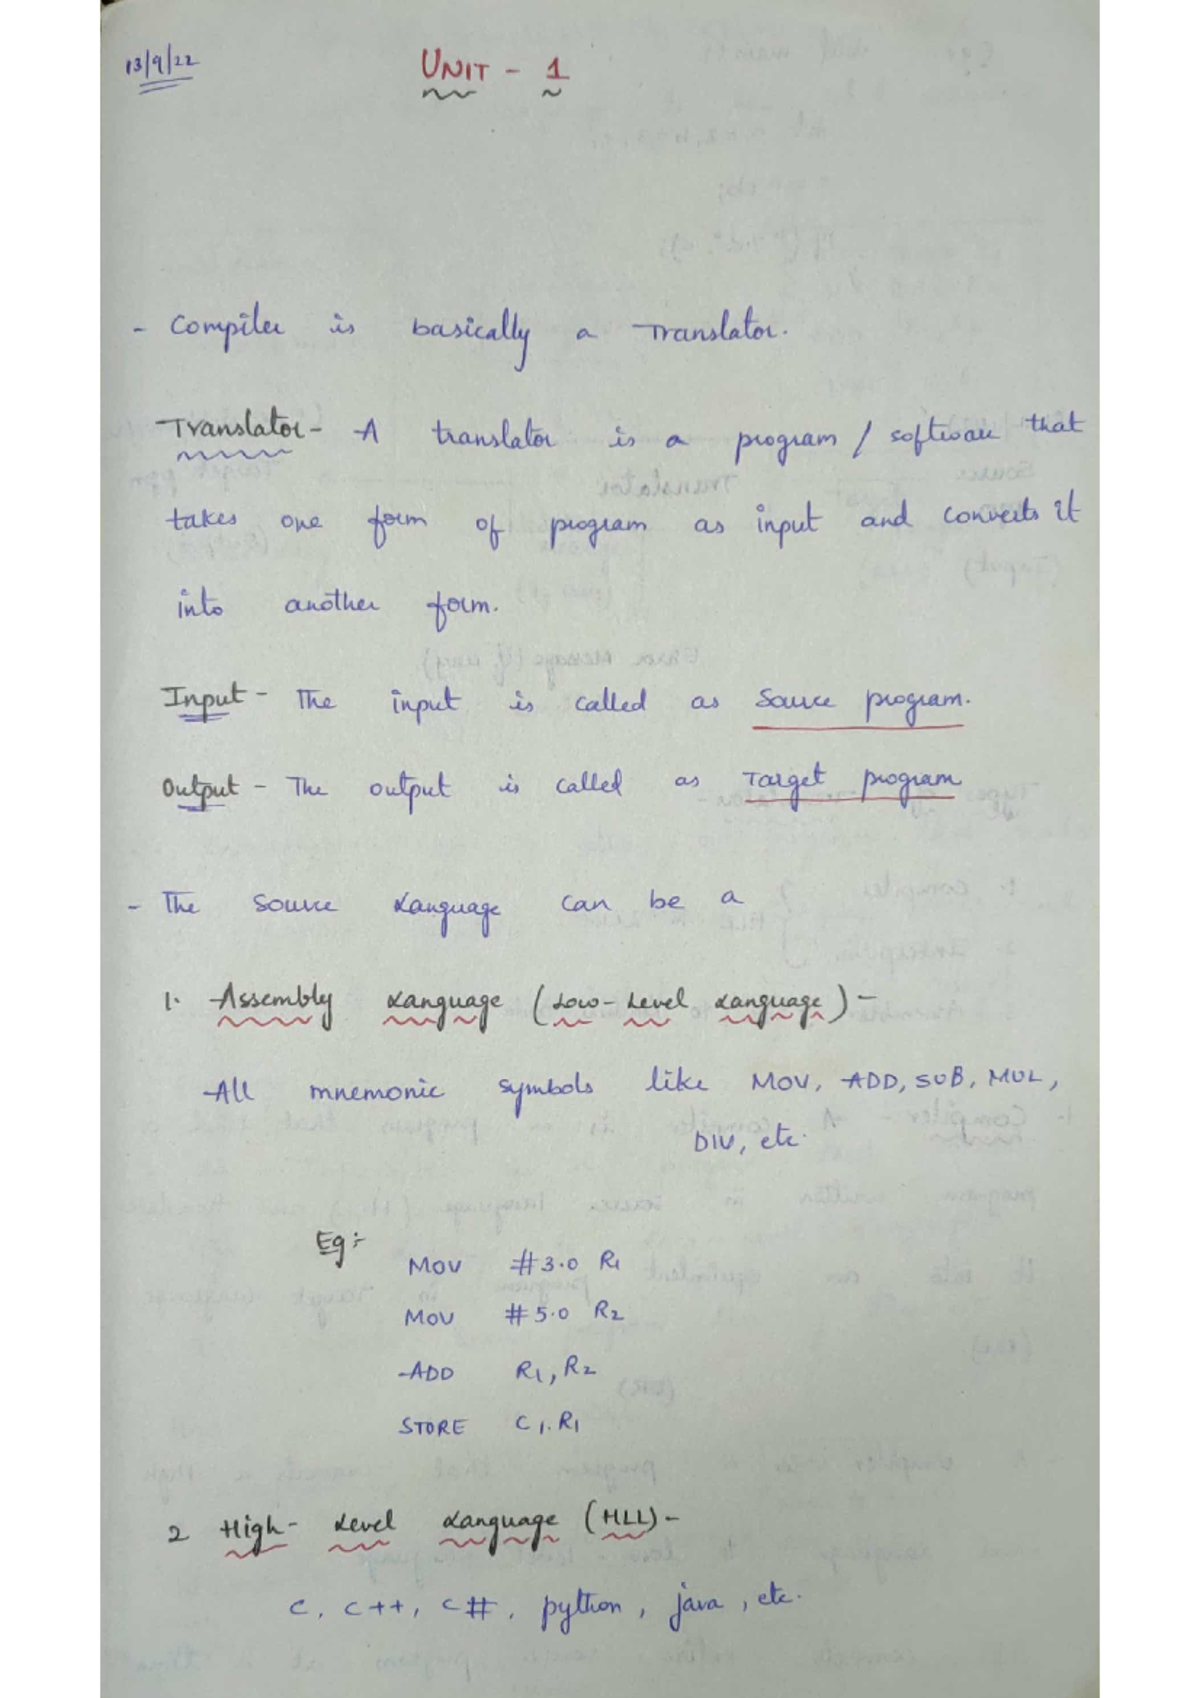 13/9/22
UNIT - 1
- Compiler is basically a Translator.
Translator - A translator is a program / software that
takes one form of program as input and converts it
into another form.
Input - The input is called as Source program.
Output - The output is called as Target program
- The source Language can be a
1. Assembly Language (Low-Level Language) -
All mnemonic symbols like MOV, ADD, SUB, MUL,
DIV, etc.
Eg :-
MOV #3.0 R1
MOV #5.0 R2
ADD R1, R2
STORE C1. R1
2 High-Level Language (HLL) -
C, C++, C#, python, java, etc.